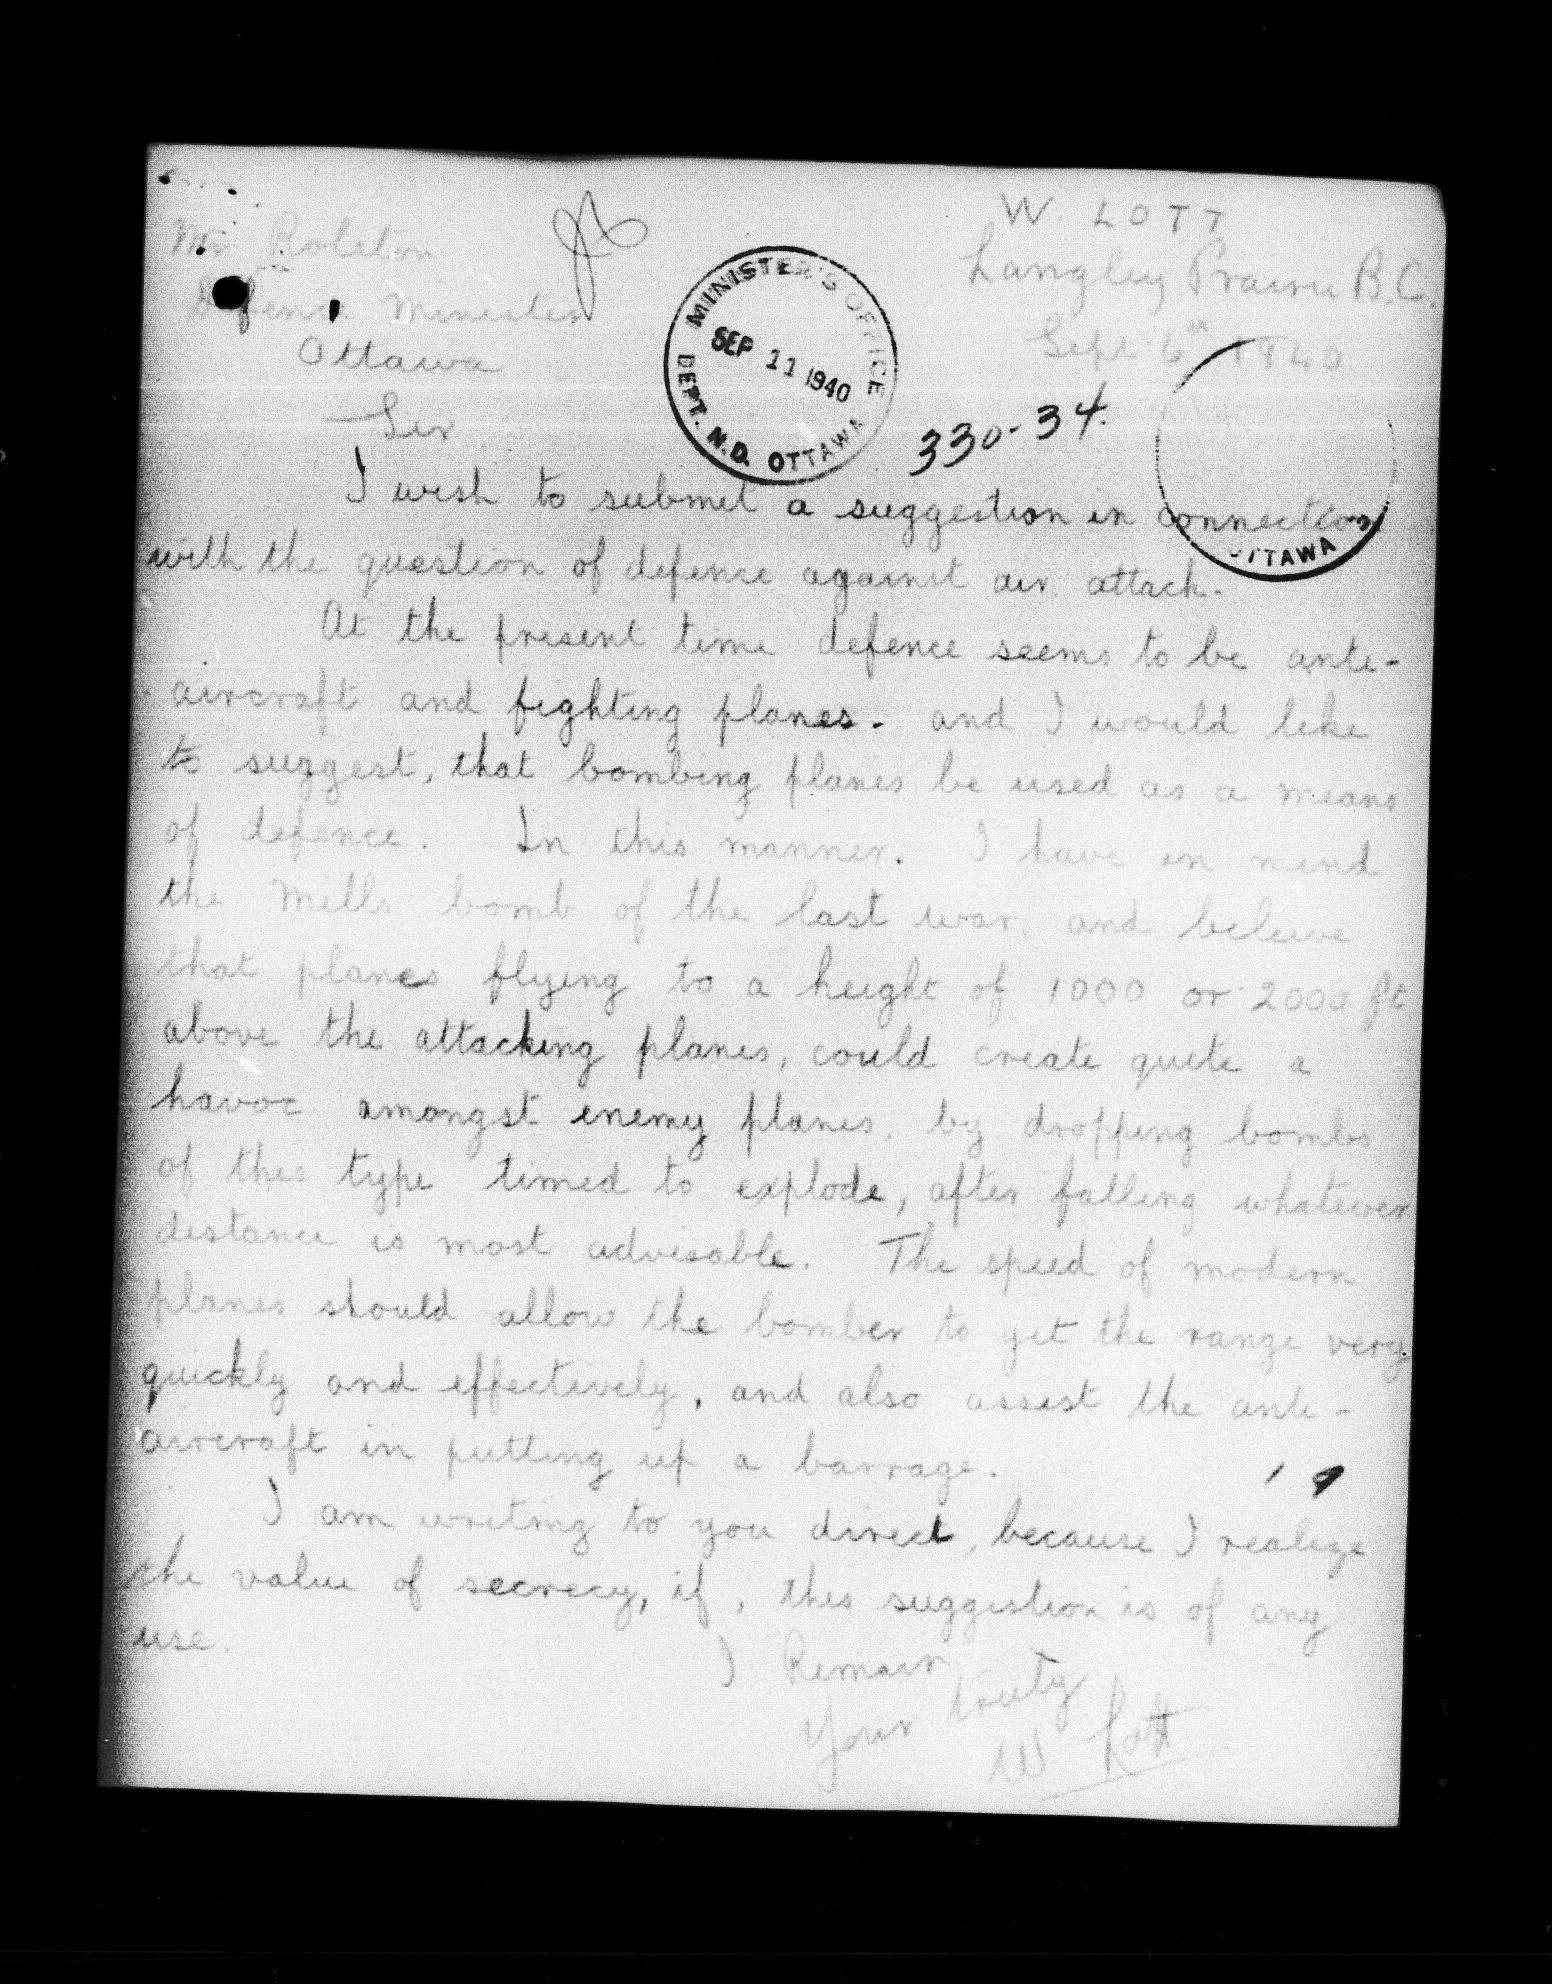 W. LOTT
Langley Prairie B.C.
Sept 6th 1940
Mr Rolston
Defence Minister
Ottawa
Sir
MINISTER'S OFFICE
SEP 11 1940
DEPT. N.D. OTTAWA
330-34.
OTTAWA
I wish to submit a suggestion in connection
with the question of defence against air attack.
At the present time defence seems to be anti-
aircraft and fighting planes. and I would like
to suggest, that bombing planes be used as a means
of defence. In this manner. I have in mind
the Mills bomb of the last war, and beleive
that planes flying to a height of 1000 or 2000 ft
above the attacking planes, could create quite a
havoc amongst enemy planes, by dropping bombs
of this type timed to explode, after falling whatever
distance is most advisable. The speed of modern
planes should allow the bomber to get the range very
quickly and effectively, and also assist the anti-
aircraft in putting up a barrage.
I am writing to you direct, because I realize
the value of secrecy, if, this suggestion is of any
use.
I Remain
Your truly
W Lott